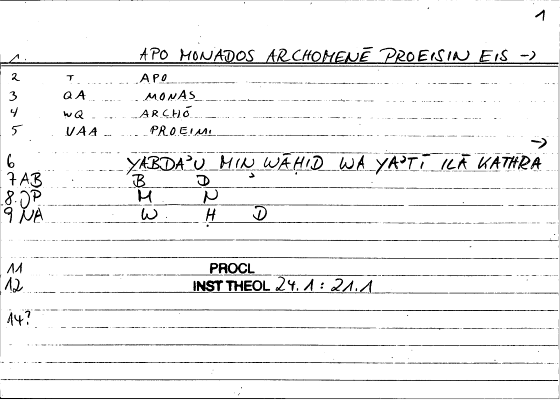 1
1 APO MONADOS ARCHOMENĒ PROEISIN EIS →
2 T APO
3 QA MONAS
4 WQ ARCHŌ
5 VAA PROEIMI
→
6 YABDAʾU MIN WĀḤID WA YAʾTĪ ILĀ KATHRA
7 AB B D ʾ
8 OP M N
9 NA W Ḥ D
11 PROCL
12 INST THEOL 24.1 : 21.1
14?